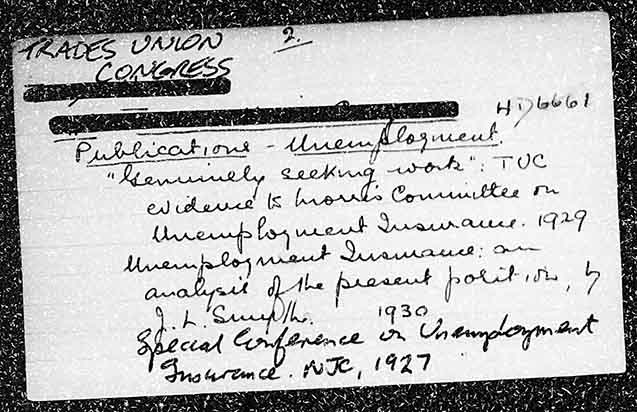 TRADES UNION
CONGRESS
2.
HD6661
Publications - Unemployment.
"Genuinely seeking work": TUC
evidence to Morris Committee on
Unemployment Insurance. 1929
Unemployment Insurance: an
analysis of the present position, by
J. L. Smyth. 1930
Special Conference on Unemployment
Insurance. NJC, 1927